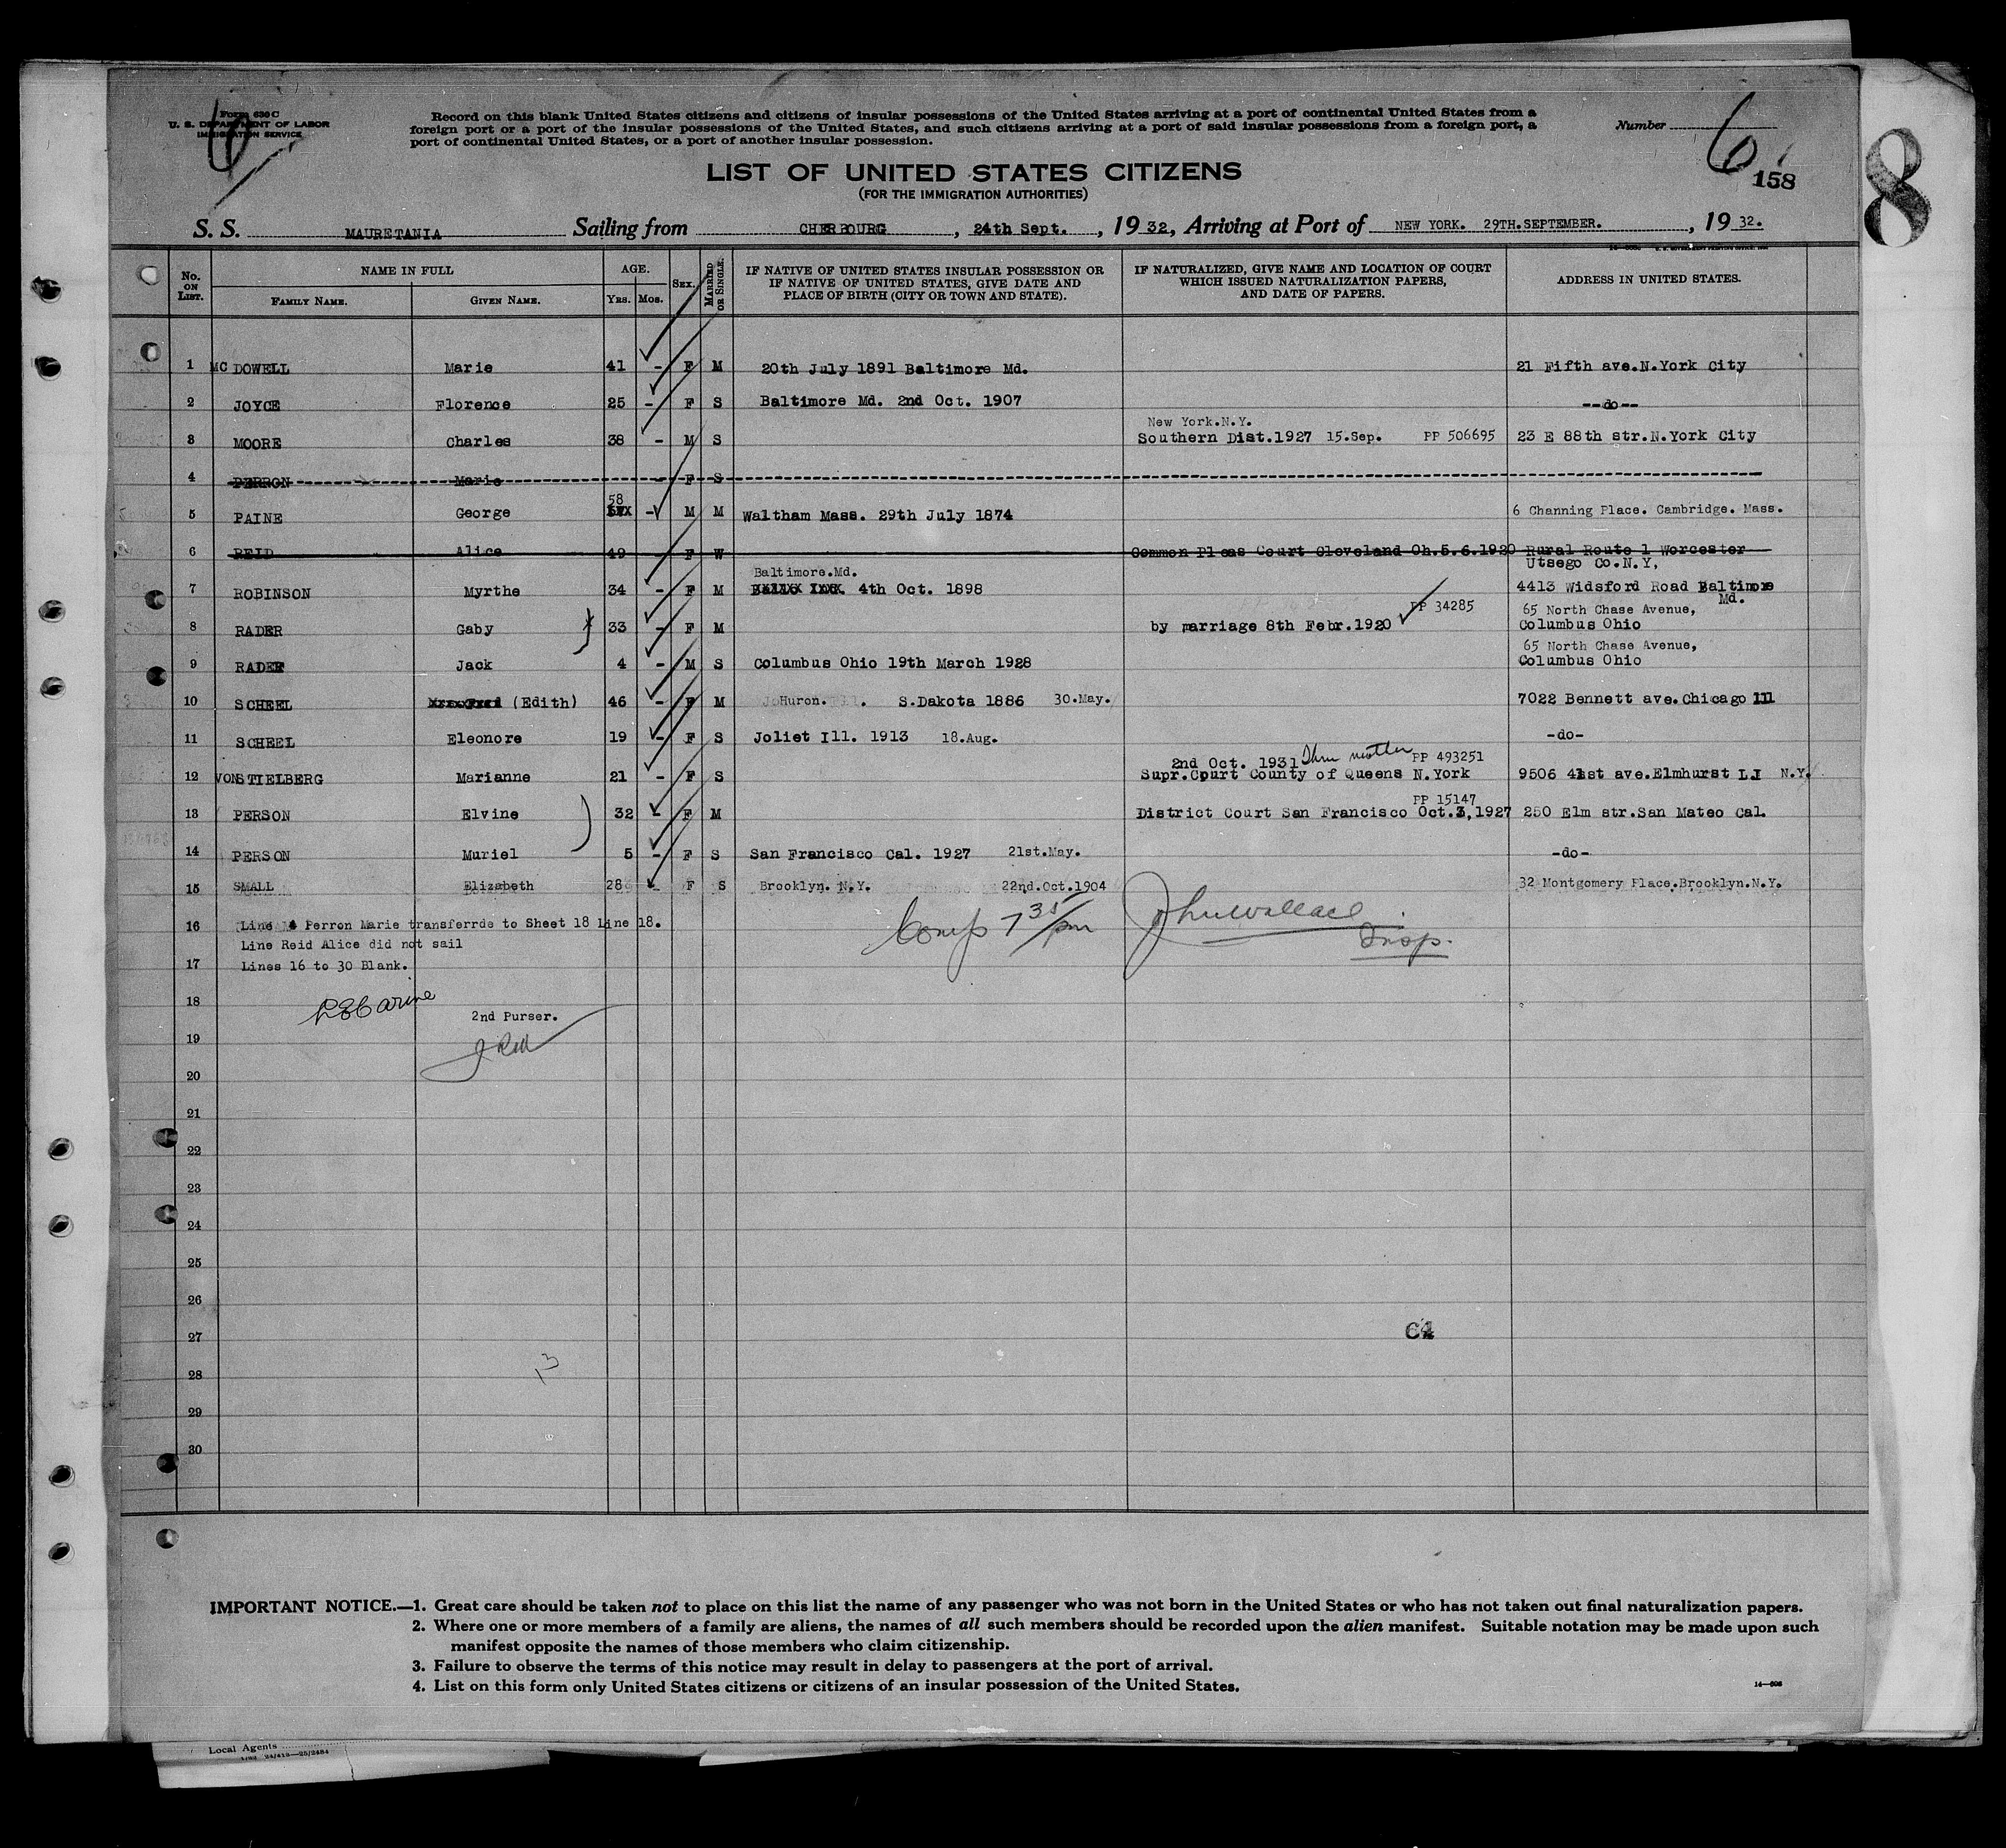 Form 630 C
U. S. DEPARTMENT OF LABOR
IMMIGRATION SERVICE
6
Record on this blank United States citizens and citizens of insular possessions of the United States arriving at a port of continental United States from a
foreign port or a port of the insular possessions of the United States, and such citizens arriving at a port of said insular possessions from a foreign port, a
port of continental United States, or a port of another insular possession.
Number
6
158
8
LIST OF UNITED STATES CITIZENS
(FOR THE IMMIGRATION AUTHORITIES)
S. S. MAURETANIA Sailing from CHERBOURG, 24th Sept., 1932, Arriving at Port of NEW YORK. 29TH.SEPTEMBER., 1932.
No. ON LIST. NAME IN FULL FAMILY NAME. GIVEN NAME. AGE. YRS. MOS. SEX. MARRIED OR SINGLE. IF NATIVE OF UNITED STATES INSULAR POSSESSION OR IF NATIVE OF UNITED STATES, GIVE DATE AND PLACE OF BIRTH (CITY OR TOWN AND STATE). IF NATURALIZED, GIVE NAME AND LOCATION OF COURT WHICH ISSUED NATURALIZATION PAPERS, AND DATE OF PAPERS. ADDRESS IN UNITED STATES.
1 MC DOWELL Marie 41 - F M 20th July 1891 Baltimore Md. 21 Fifth ave.N.York City
2 JOYCE Florence 25 - F S Baltimore Md. 2nd Oct. 1907 --do--
New York.N.Y.
3 MOORE Charles 38 - M S Southern Dist.1927 15.Sep. PP 506695 23 E 88th str.N.York City
4 PERRON Marie - F S
58
5 PAINE George - M M Waltham Mass. 29th July 1874 6 Channing Place. Cambridge. Mass.
6 REID Alice 49 - F W Common Pleas Court Cleveland Oh.5.6.1920 Rural Route 1 Worcester
Utsego Co.N.Y,
Baltimore.Md.
7 ROBINSON Myrthe 34 - F M 4th Oct. 1898 4413 Widsford Road Baltimore
Md.
PP 34285 65 North Chase Avenue,
8 RADER Gaby 33 - F M by marriage 8th Febr.1920 Columbus Ohio
65 North Chase Avenue,
9 RADER Jack 4 - M S Columbus Ohio 19th March 1928 Columbus Ohio
10 SCHEEL (Edith) 46 - F M Huron. S.Dakota 1886 30.May. 7022 Bennett ave.Chicago Ill
11 SCHEEL Eleonore 19 - F S Joliet Ill. 1913 18.Aug. -do-
2nd Oct. 1931 Thru mother PP 493251
12 VON STIELBERG Marianne 21 - F S Supr.Court County of Queens N.York 9506 41st ave.Elmhurst L.I N.Y.
PP 15147
13 PERSON Elvine 32 - F M District Court San Francisco Oct.3,1927 250 Elm str.San Mateo Cal.
14 PERSON Muriel 5 - F S San Francisco Cal. 1927 21st.May. -do-
15 SMALL Elizabeth 28 - F S Brooklyn. N.Y. 22nd.Oct.1904 32 Montgomery Place.Brooklyn.N.Y.
16 Line 4 Perron Marie transferrde to Sheet 18 Line 18.
Comp 7 35/pm John Wallace
Insp.
Line Reid Alice did not sail
17 Lines 16 to 30 Blank.
18
2nd Purser.
19
20
21
22
23
24
25
26
27 C4
28
29
30
IMPORTANT NOTICE.—1. Great care should be taken not to place on this list the name of any passenger who was not born in the United States or who has not taken out final naturalization papers.
2. Where one or more members of a family are aliens, the names of all such members should be recorded upon the alien manifest. Suitable notation may be made upon such
manifest opposite the names of those members who claim citizenship.
3. Failure to observe the terms of this notice may result in delay to passengers at the port of arrival.
4. List on this form only United States citizens or citizens of an insular possession of the United States.
Local Agents